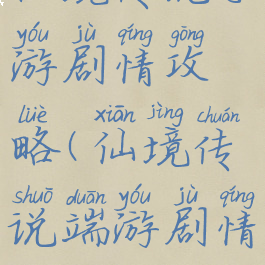 yóu jù qíng gōng
游剧情攻
lüè xiān jìng chuán
略(仙境传
shuō duān yóu jù qíng
说端游剧情